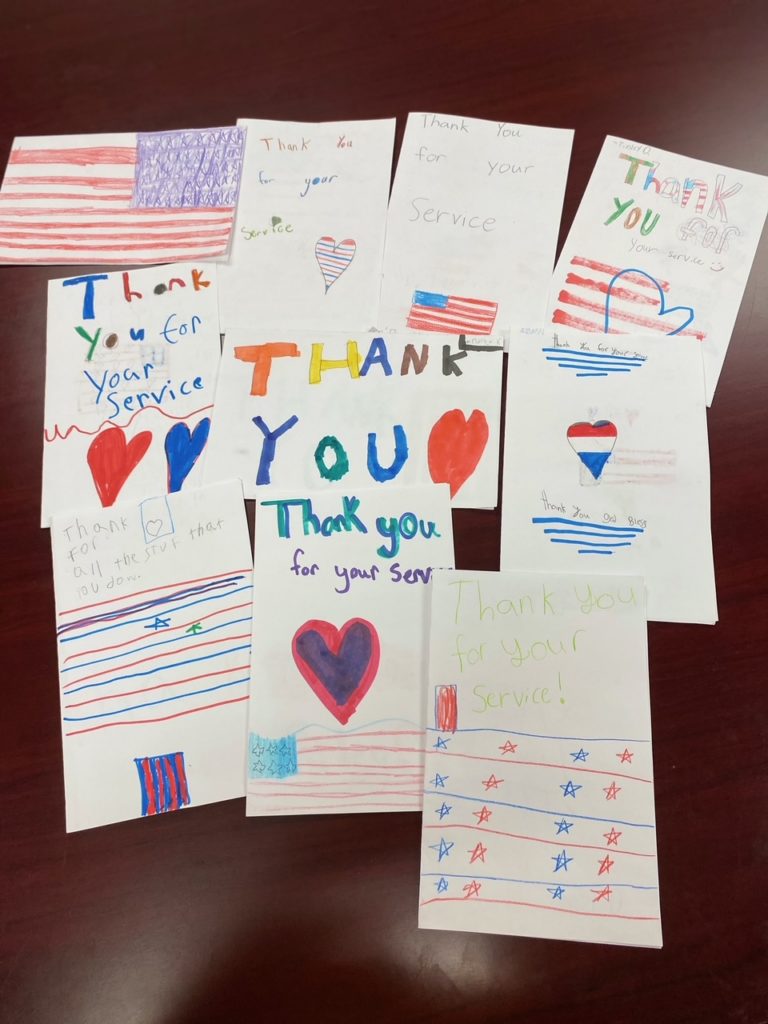 Thank You
for your
Service
Thank You
for your
Service
Thank
YOU for
Your service :)
Thank
You for
Your
Service
THANK
YOU
Thank You for your
Thank you God Bless
Thank
For
all the stuf that
you dow.
Thank you
for your Serv
Thank You
for Your
Service!